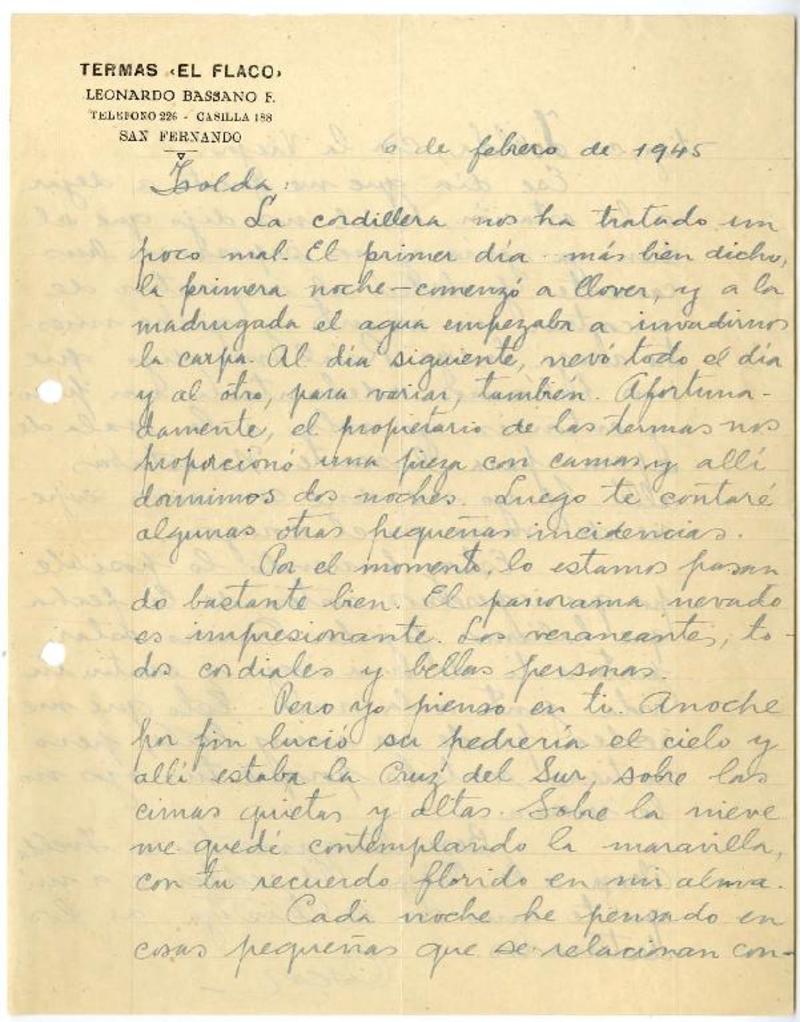 TERMAS «EL FLACO»
LEONARDO BASSANO F.
TELEFONO 226 - CASILLA 188
SAN FERNANDO
6 de febrero de 1945
Isolda:
La cordillera nos ha tratado un
poco mal. El primer día - más bien dicho,
la primera noche - comenzó a llover, y a la
madrugada el agua empezaba a invadirnos
la carpa. Al día siguiente, nevó todo el día
y al otro, para variar, también. Afortuna-
damente, el propietario de las termas nos
proporcionó una pieza con camas y allí
dormimos dos noches. Luego te contaré
algunas otras pequeñas incidencias.
Por el momento, lo estamos pasan
do bastante bien. El panorama nevado
es impresionante. Los veraneantes, to-
dos cordiales y bellas personas.
Pero yo pienso en ti. Anoche
por fin lució su pedrería el cielo y
allí estaba la Cruz del Sur, sobre las
cimas quietas y altas. Sobre la nieve
me quedé contemplando la maravilla,
con tu recuerdo florido en mi alma.
Cada noche he pensado en
cosas pequeñas que se relacionan con-